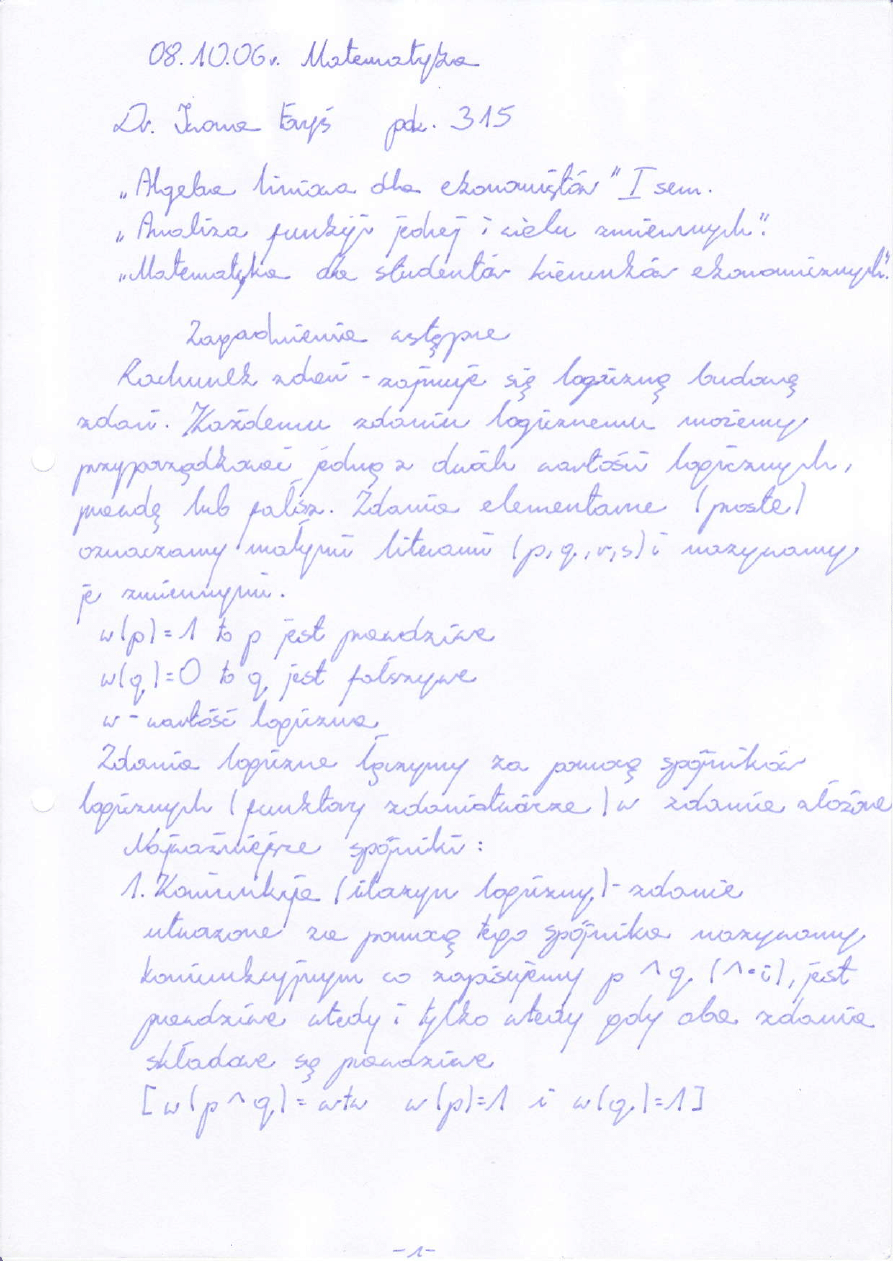 08.10.06r. Matematyka
Dr. Iwona Foryś pok. 315
„Algebra liniowa dla ekonomistów" I sem.
„Analiza funkcji jednej i wielu zmiennych".
„Matematyka dla studentów kierunków ekonomicznych".
Zagadnienia wstępne
Rachunek zdań - zajmuje się logiczną budową
zdań. Każdemu zdaniu logicznemu możemy
przyporządkować jedną z dwóch wartości logicznych,
prawdę lub fałsz. Zdania elementarne (proste)
oznaczamy małymi literami (p, q, r, s) i nazywamy
je zmiennymi.
w(p)=1 to p jest prawdziwe
w(q)=0 to q jest fałszywe
w - wartość logiczna
Zdania logiczne łączymy za pomocą spójników
logicznych (funktory zdaniotwórcze) w zdania złożone
Najważniejsze spójniki:
1. Koniunkcja (iloczyn logiczny) - zdanie
utworzone za pomocą tego spójnika nazywamy
koniunkcyjnym co zapisujemy p ^ q, (^ - i), jest
prawdziwe wtedy i tylko wtedy gdy oba zdania
składowe są prawdziwe
[w(p ^ q) = wtw w(p)=1 i w(q)=1]
-1-